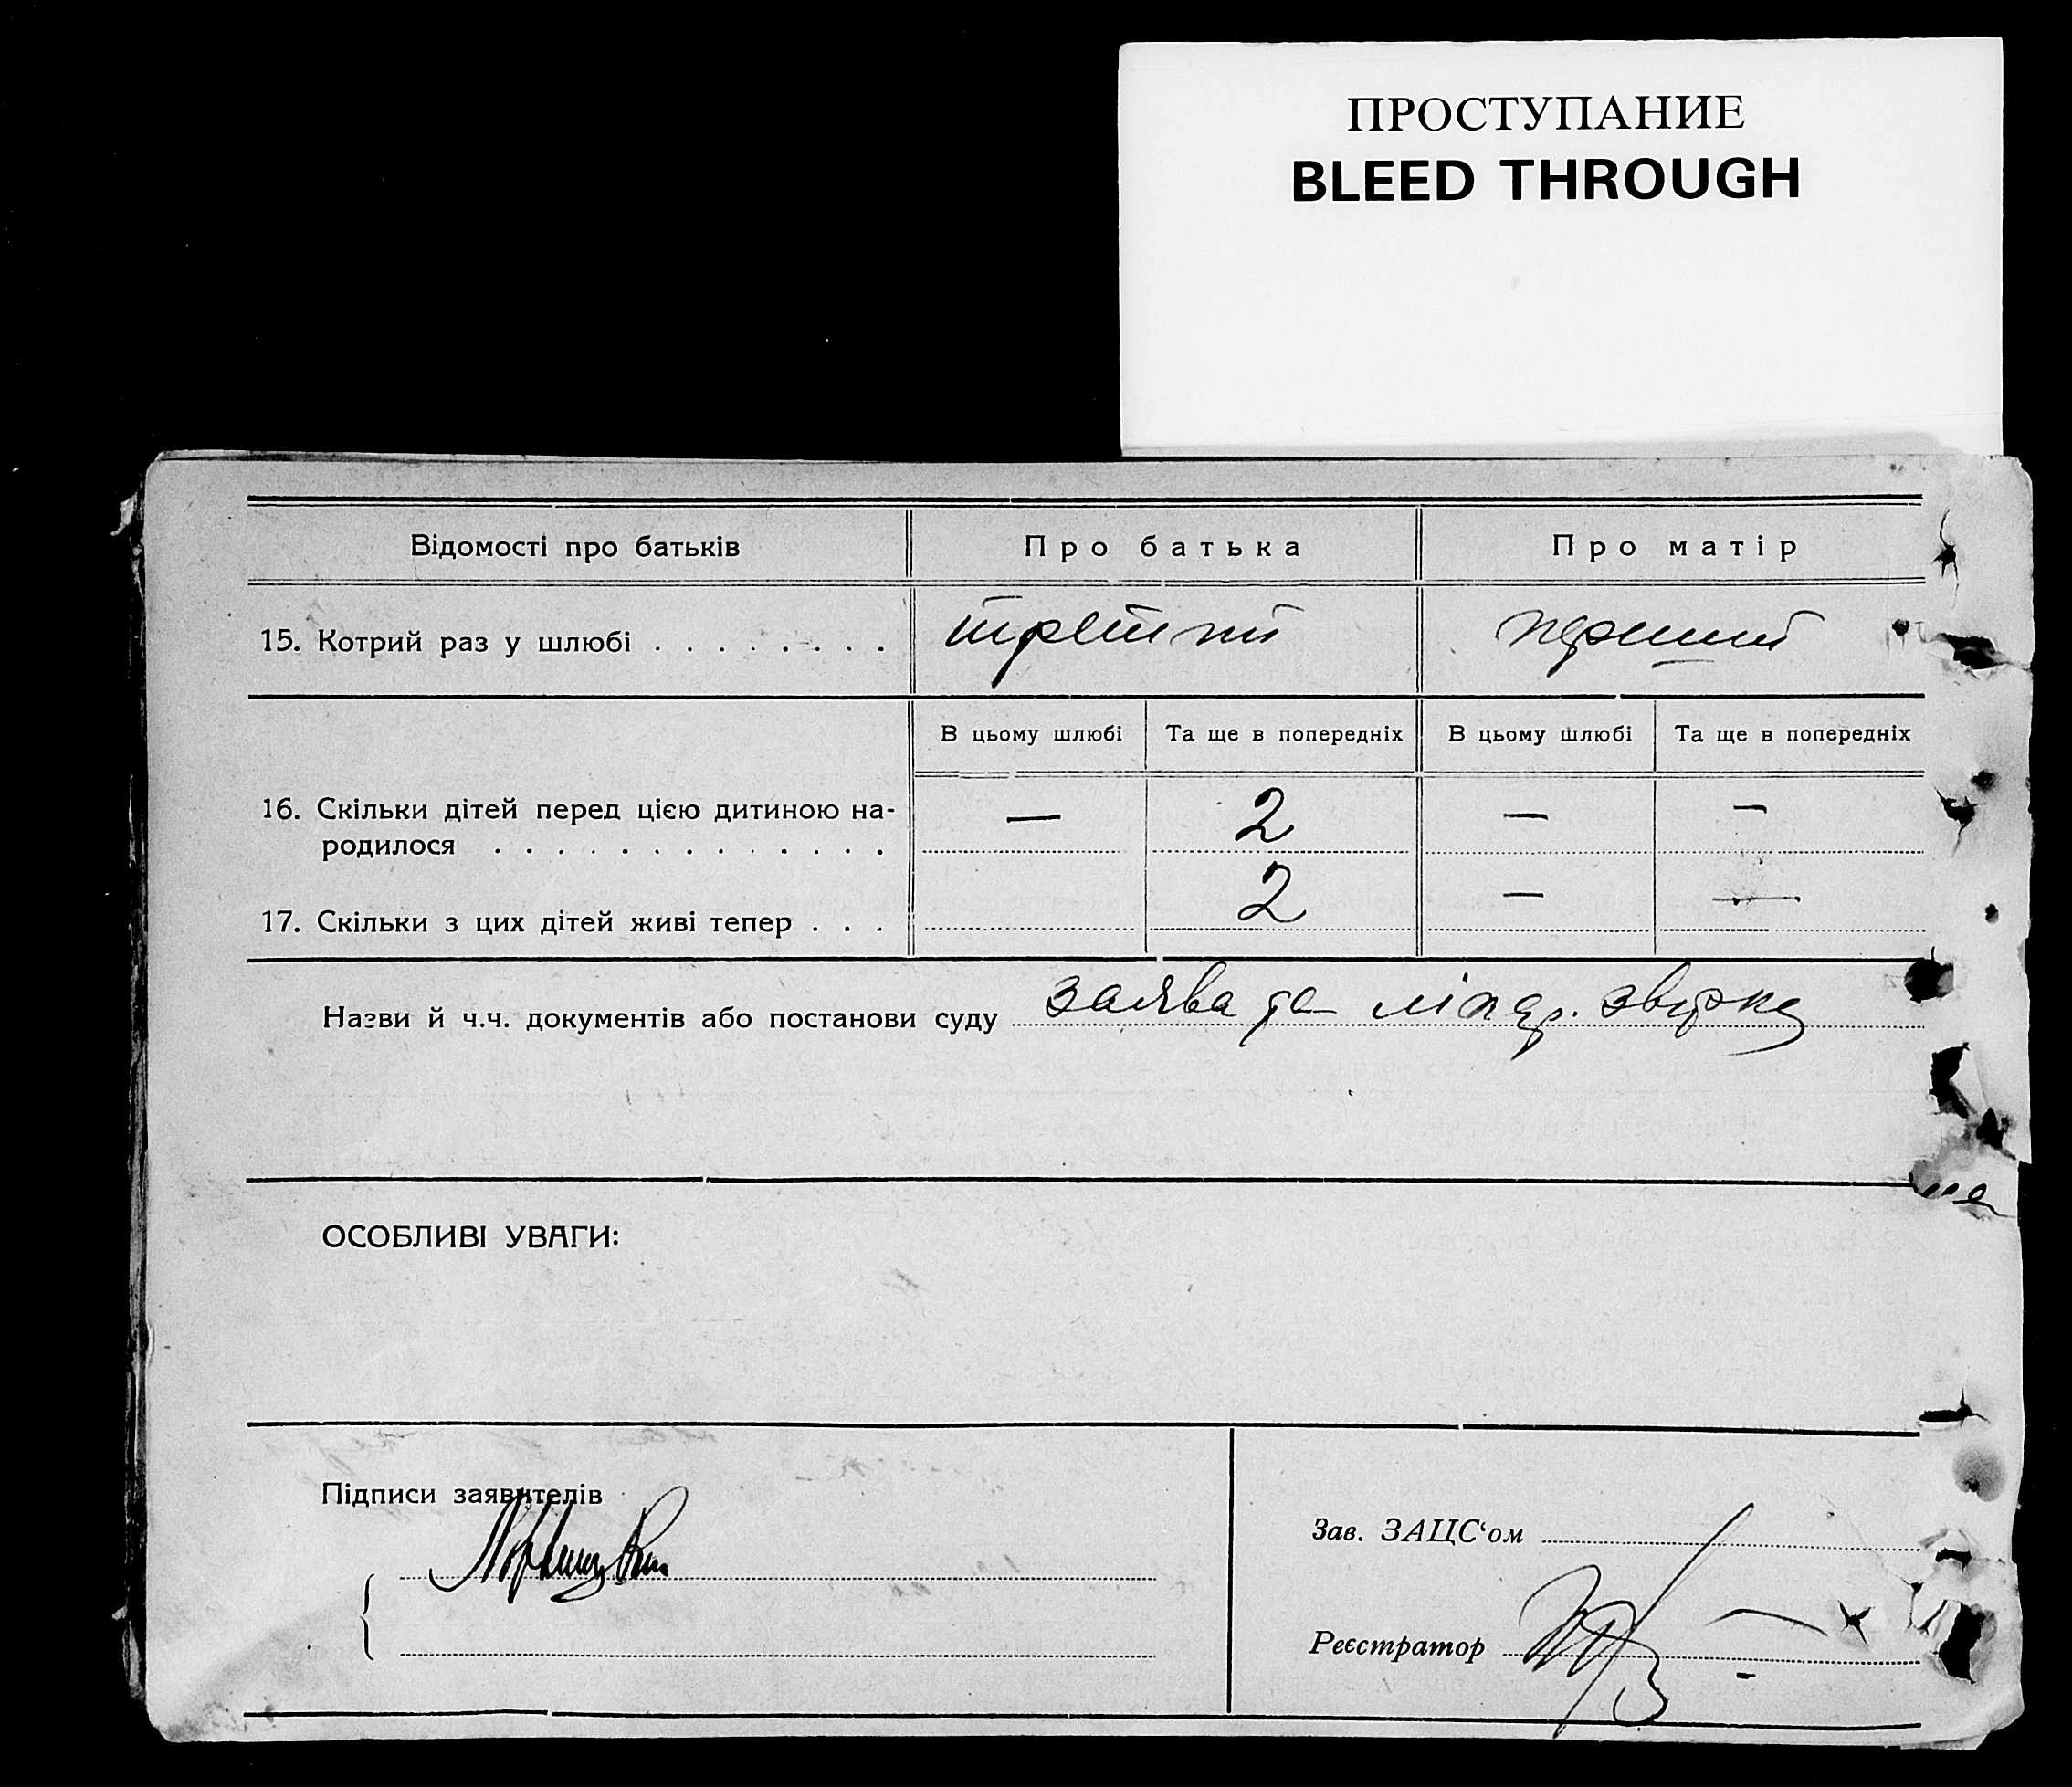 ПРОСТУПАНИЕ
BLEED THROUGH
Відомості про батьків Про батька Про матір
15. Котрий раз у шлюбі . . . . . . . . третій перший
В цьому шлюбі Та ще в попередніх В цьому шлюбі Та ще в попередніх
16. Скільки дітей перед цією дитиною на-
родилося . . . . . . . . . . . . . — 2 — —
17. Скільки з цих дітей живі тепер . . . 2 — —
Назви й ч.ч. документів або постанови суду заява та
ОСОБЛИВІ УВАГИ:
Підписи заявителів
Зав. ЗАЦС‘ом
Реєстратор